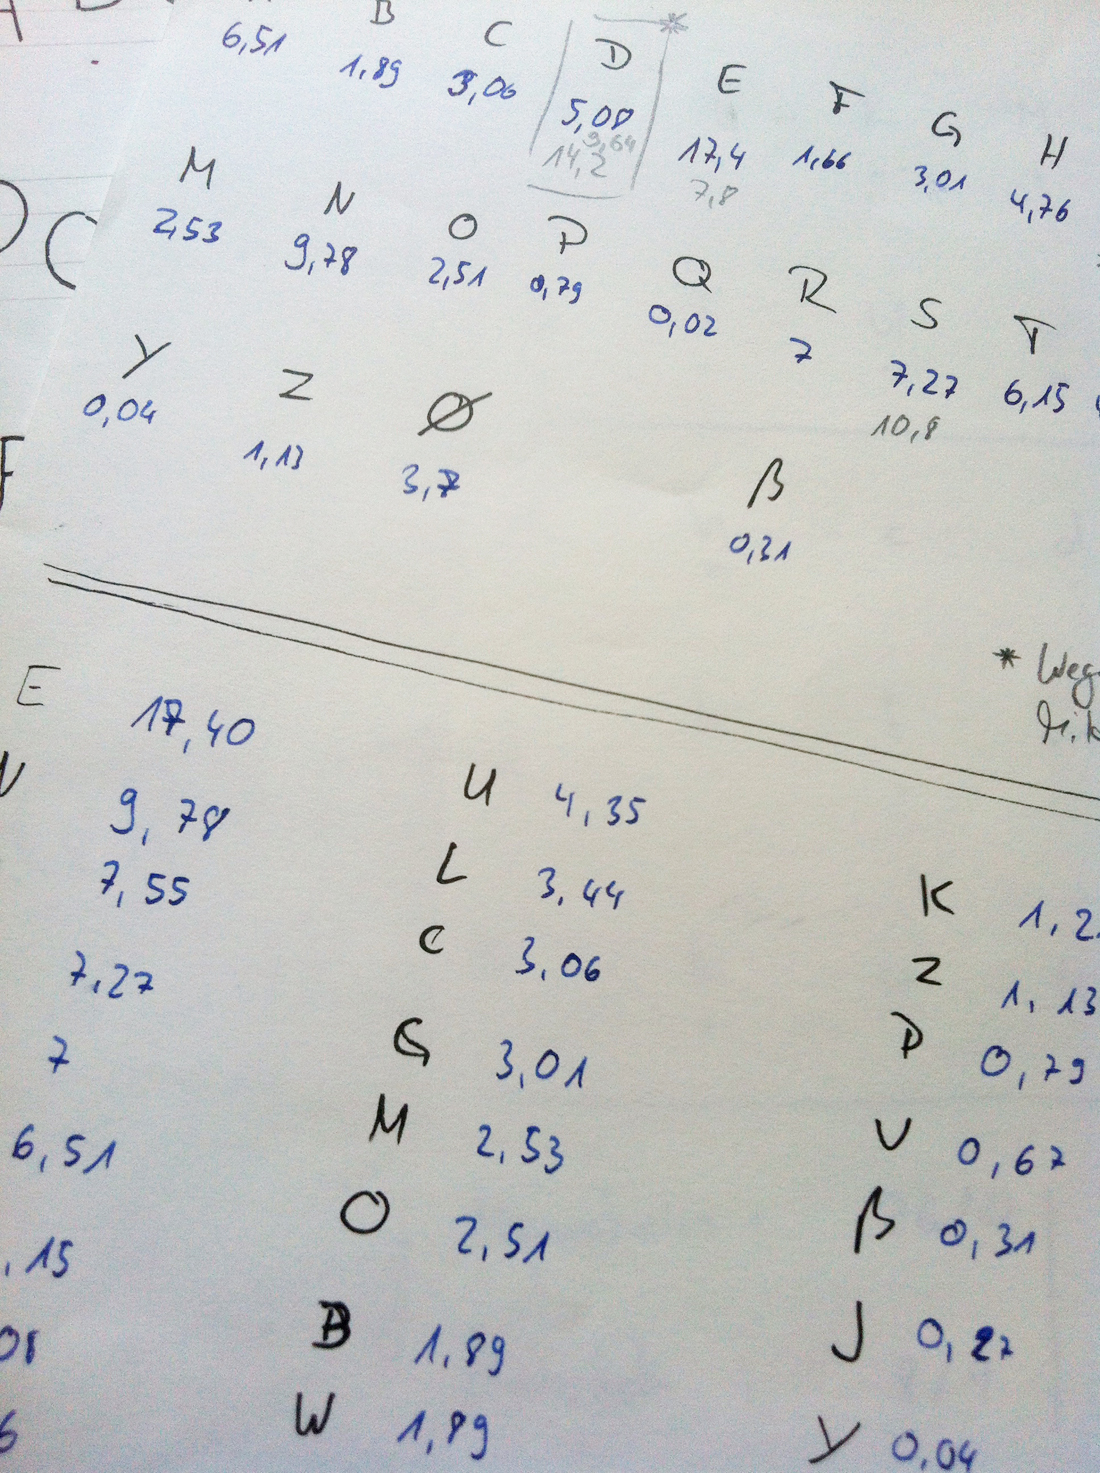 B C D * E F G H
6,51 1,89 3,06 5,08 17,4 1,66 3,01 4,76
9,64
14,2 7,8
M N O P Q R S T
2,53 9,78 2,51 0,79 0,02 7 7,27 6,15
10,8
Y Z Ø ß
0,04 1,13 3,7 0,31
*
E 17,40
N 9,78
7,55
7,27
7
6,51
,15
08
6
U 4,35
L 3,44
C 3,06
G 3,01
M 2,53
O 2,51
B 1,89
W 1,89
K 1,2
Z 1,13
P 0,79
V 0,67
ß 0,31
J 0,27
Y 0,04